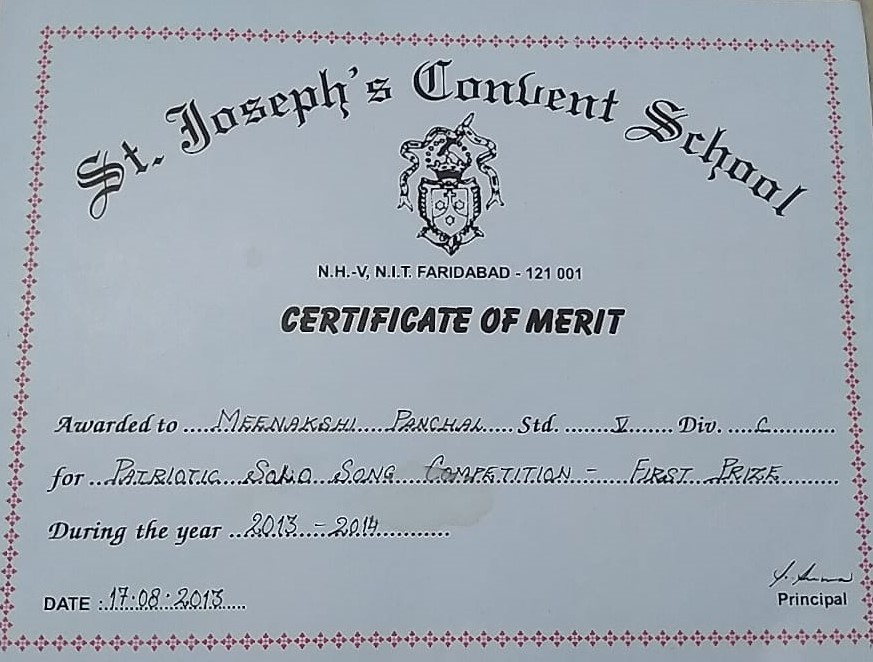 St. Joseph's Convent School
N.H.-V, N.I.T. FARIDABAD - 121 001
CERTIFICATE OF MERIT
Awarded to ....MEENAKSHI PANCHAL.... Std. ....V.... Div. ....C....
for ..PATRIOTIC SOLO SONG COMPETITION - FIRST PRIZE....
During the year ..2013 - 2014....
DATE : 17.08.2013....
Principal